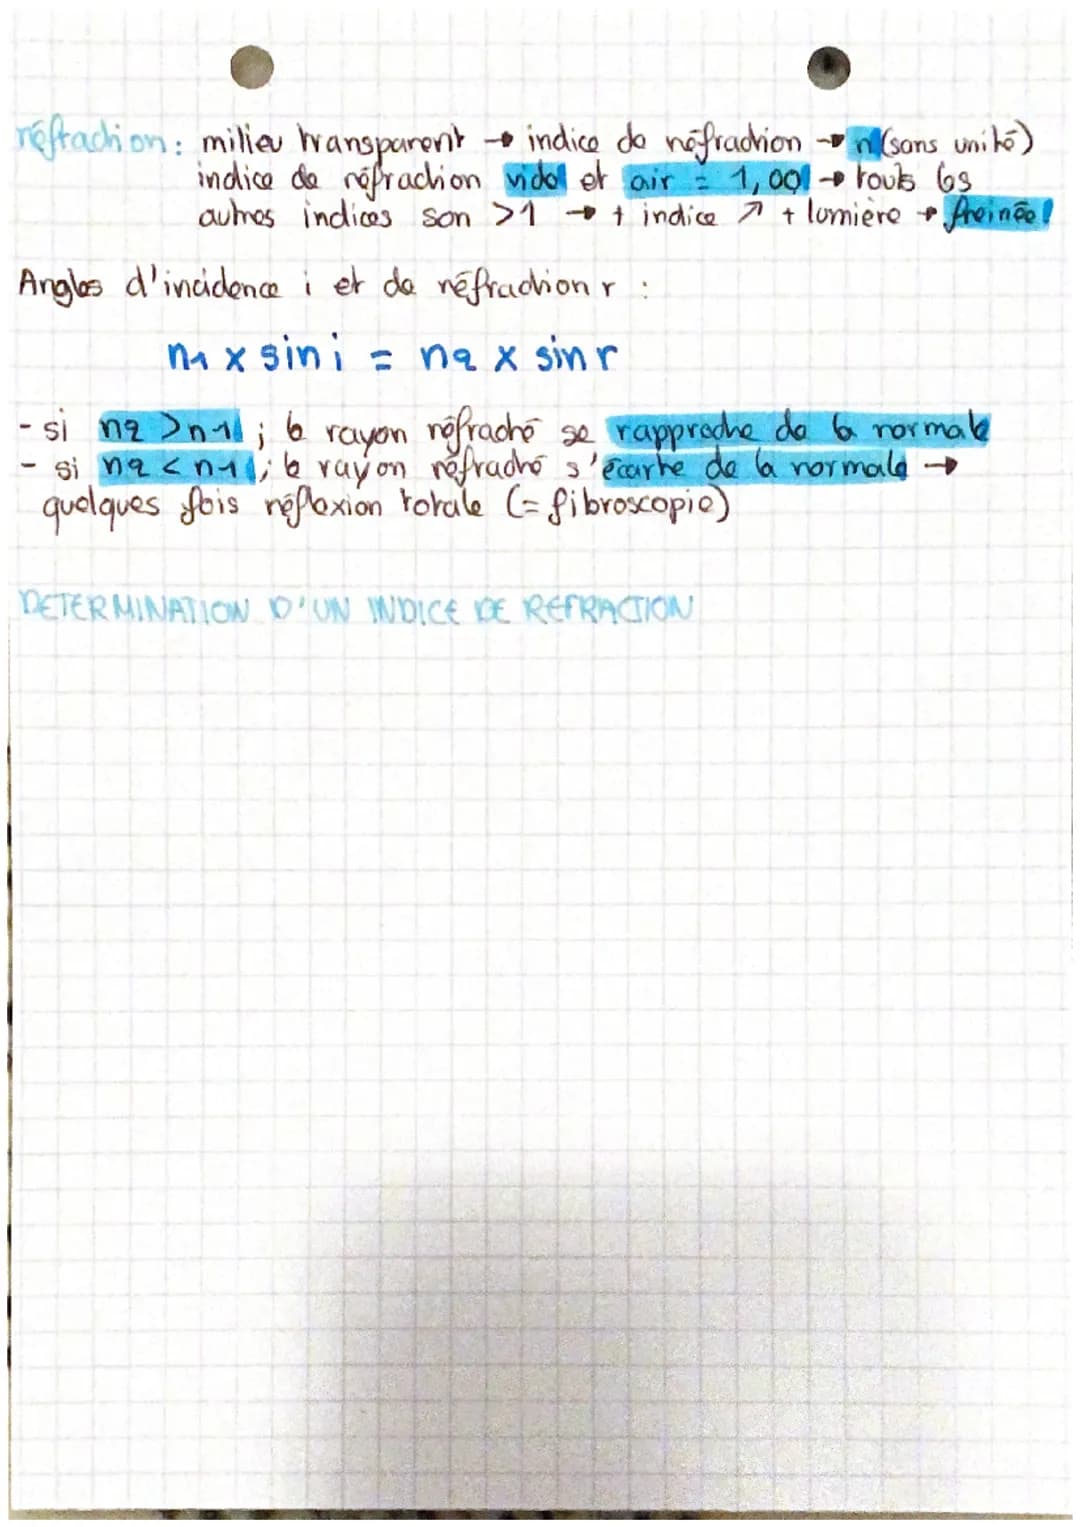 réfraction : milieu transparent → indice de réfraction → n (sans unité)
indice de réfraction vide et air = 1,00 → touts les
autres indices son >1 → + indice ↗ + lumière → freinée !
Angles d'incidence i et de réfraction r :
n1 x sin i = n2 x sin r
- si n2 > n1 ; le rayon réfracté se rapproche de la normale
- si n2 < n1 ; le rayon réfracté s'écarte de la normale →
quelques fois réflexion totale (= fibroscopie)
DETERMINATION D'UN INDICE DE REFRACTION